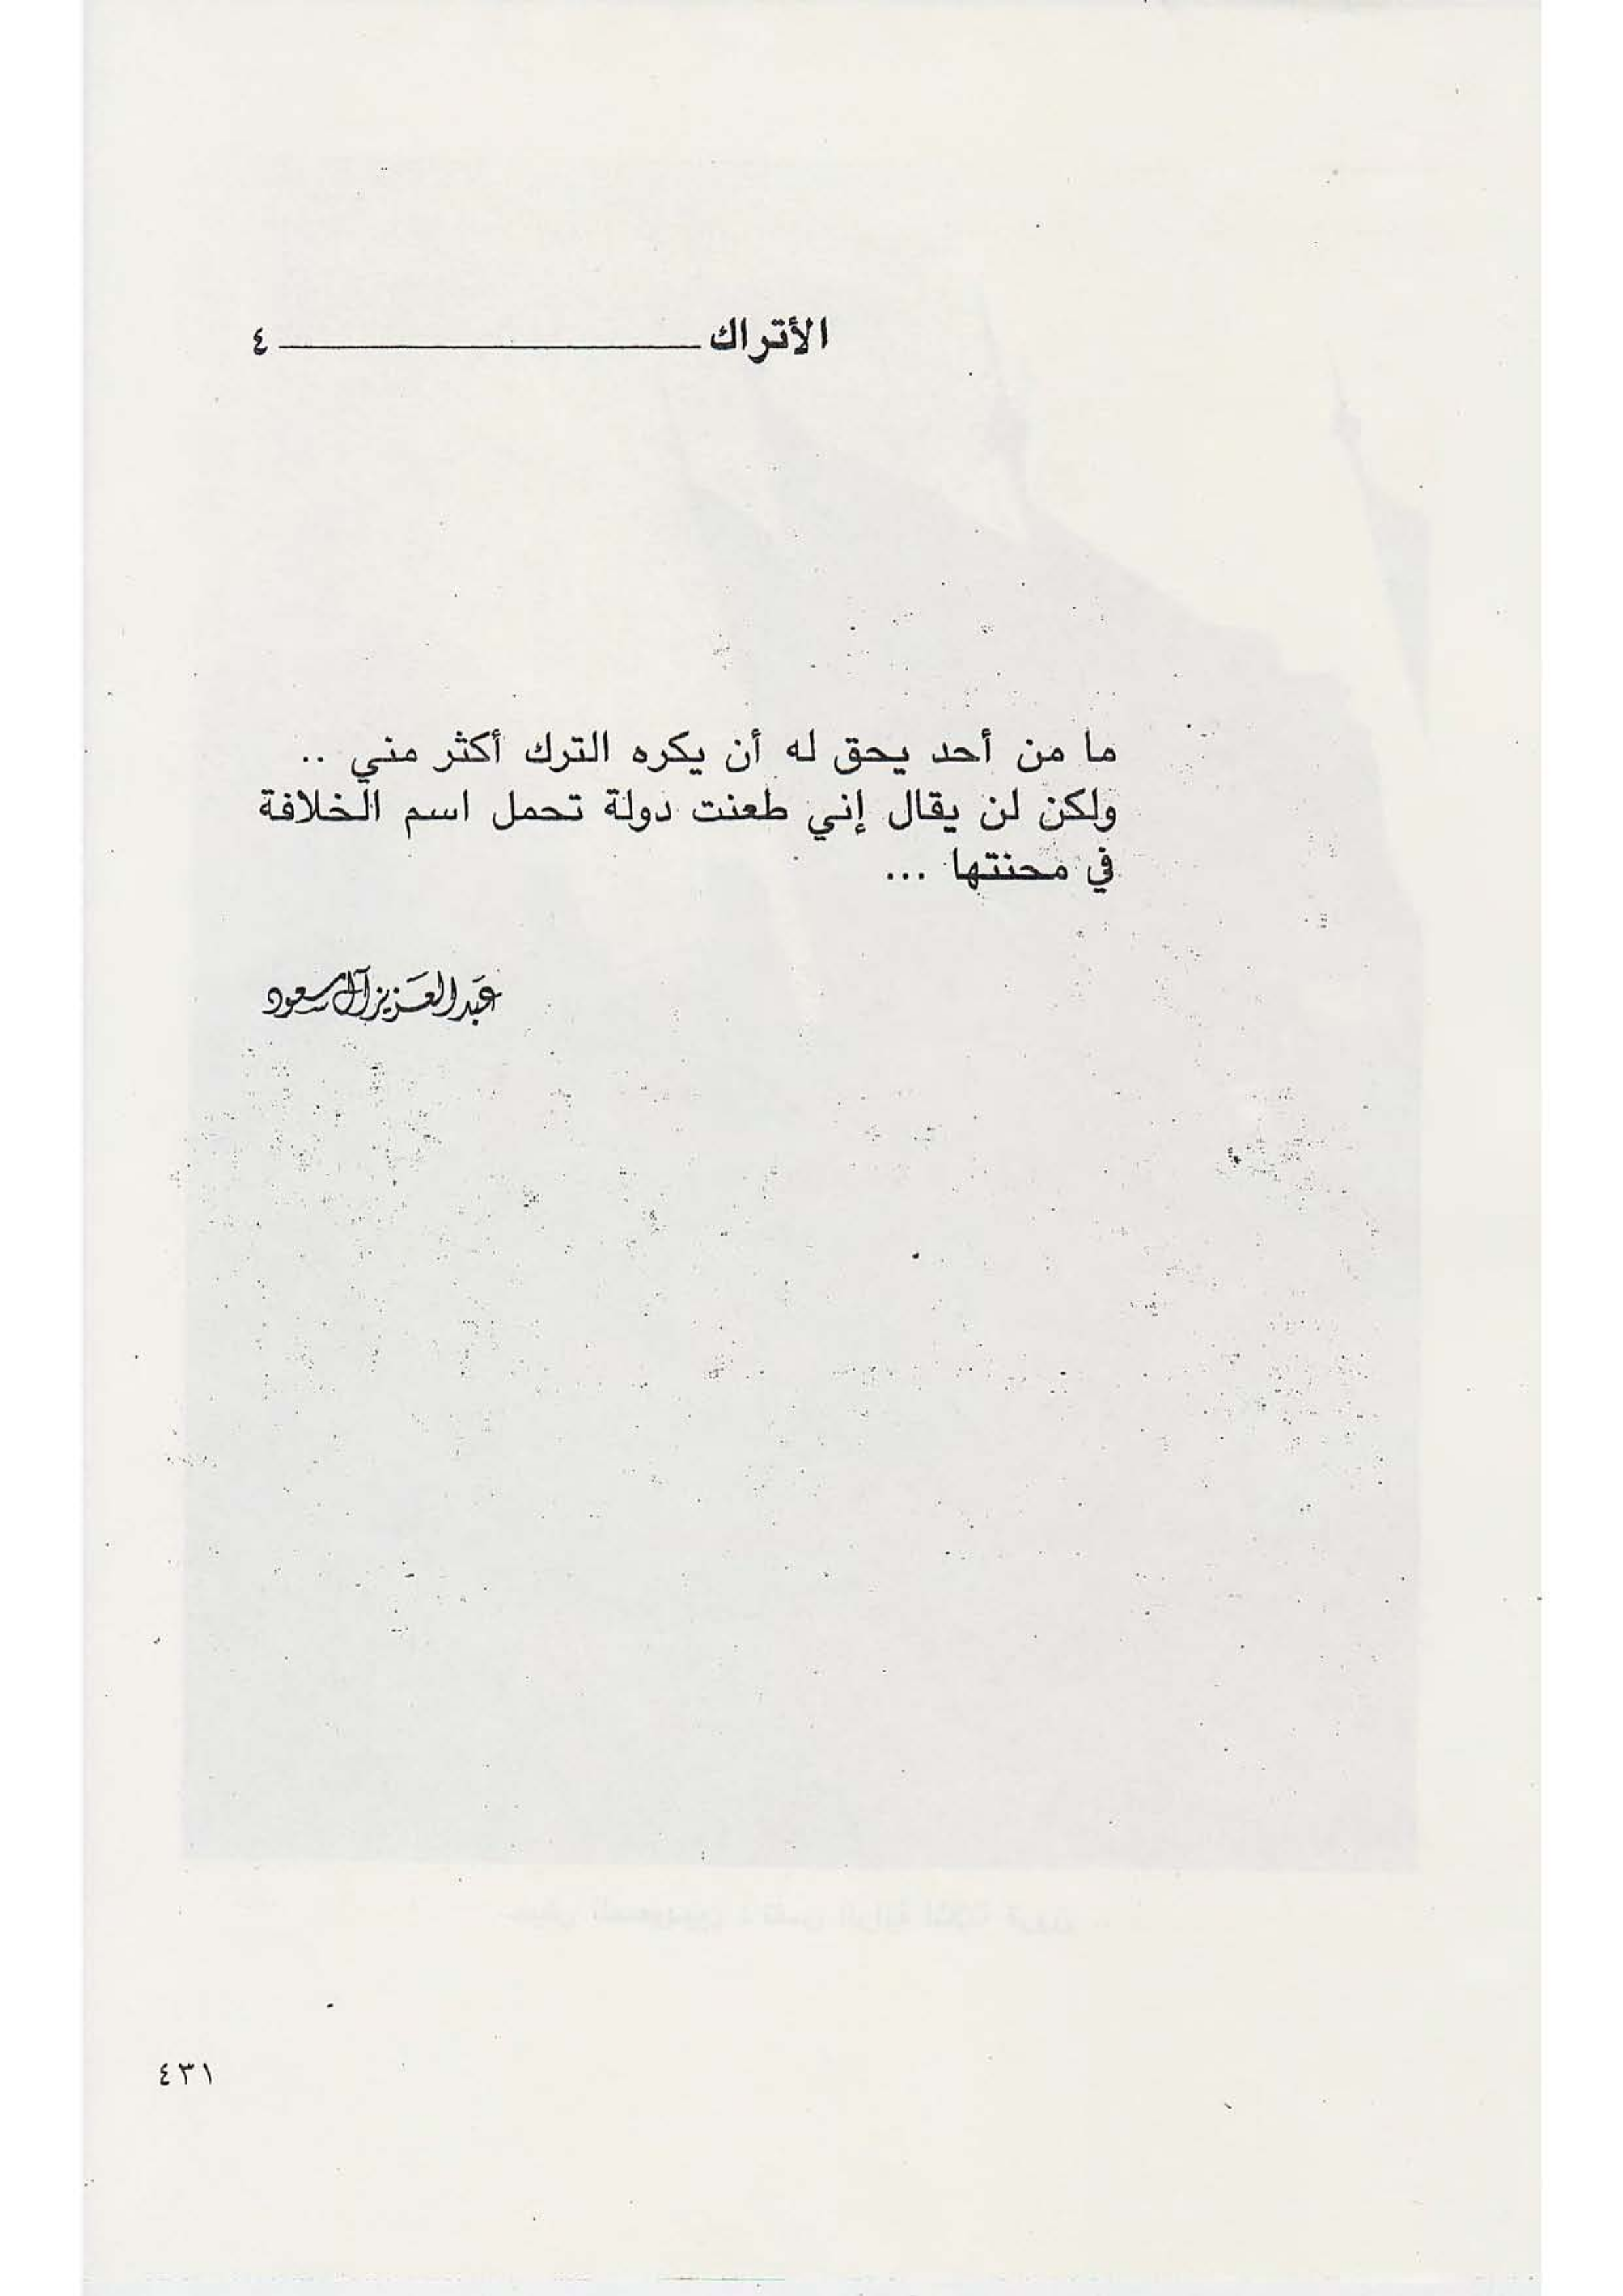 الأتراك ـــــــــــــــــــ ٤
ما من أحد يحق له أن يكره الترك أكثر مني ..
ولكن لن يقال إني طعنت دولة تحمل اسم الخلافة
في محنتها ...
عَبد العَزيز آل سعود
٤٣١